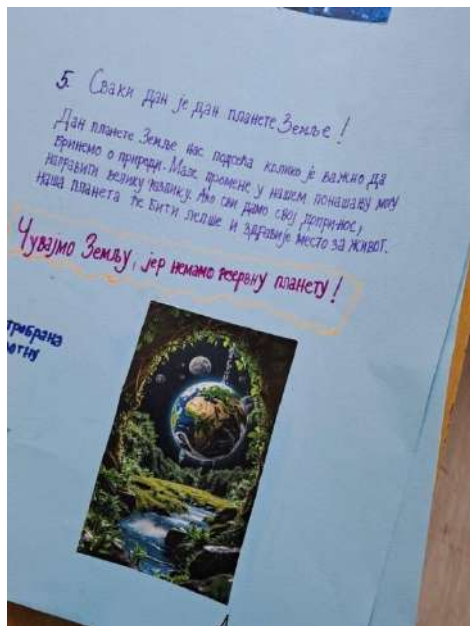 5. Сваки дан је дан планете Земље!
Дан планете Земље нас подсећа колико је важно да
бринемо о природи. Мале промене у нашем понашању могу
направити велику разлику. Ако сви дамо свој допринос,
наша планета ће бити лепше и здравије место за живот.
Чувајмо Земљу, јер немамо резервну планету!